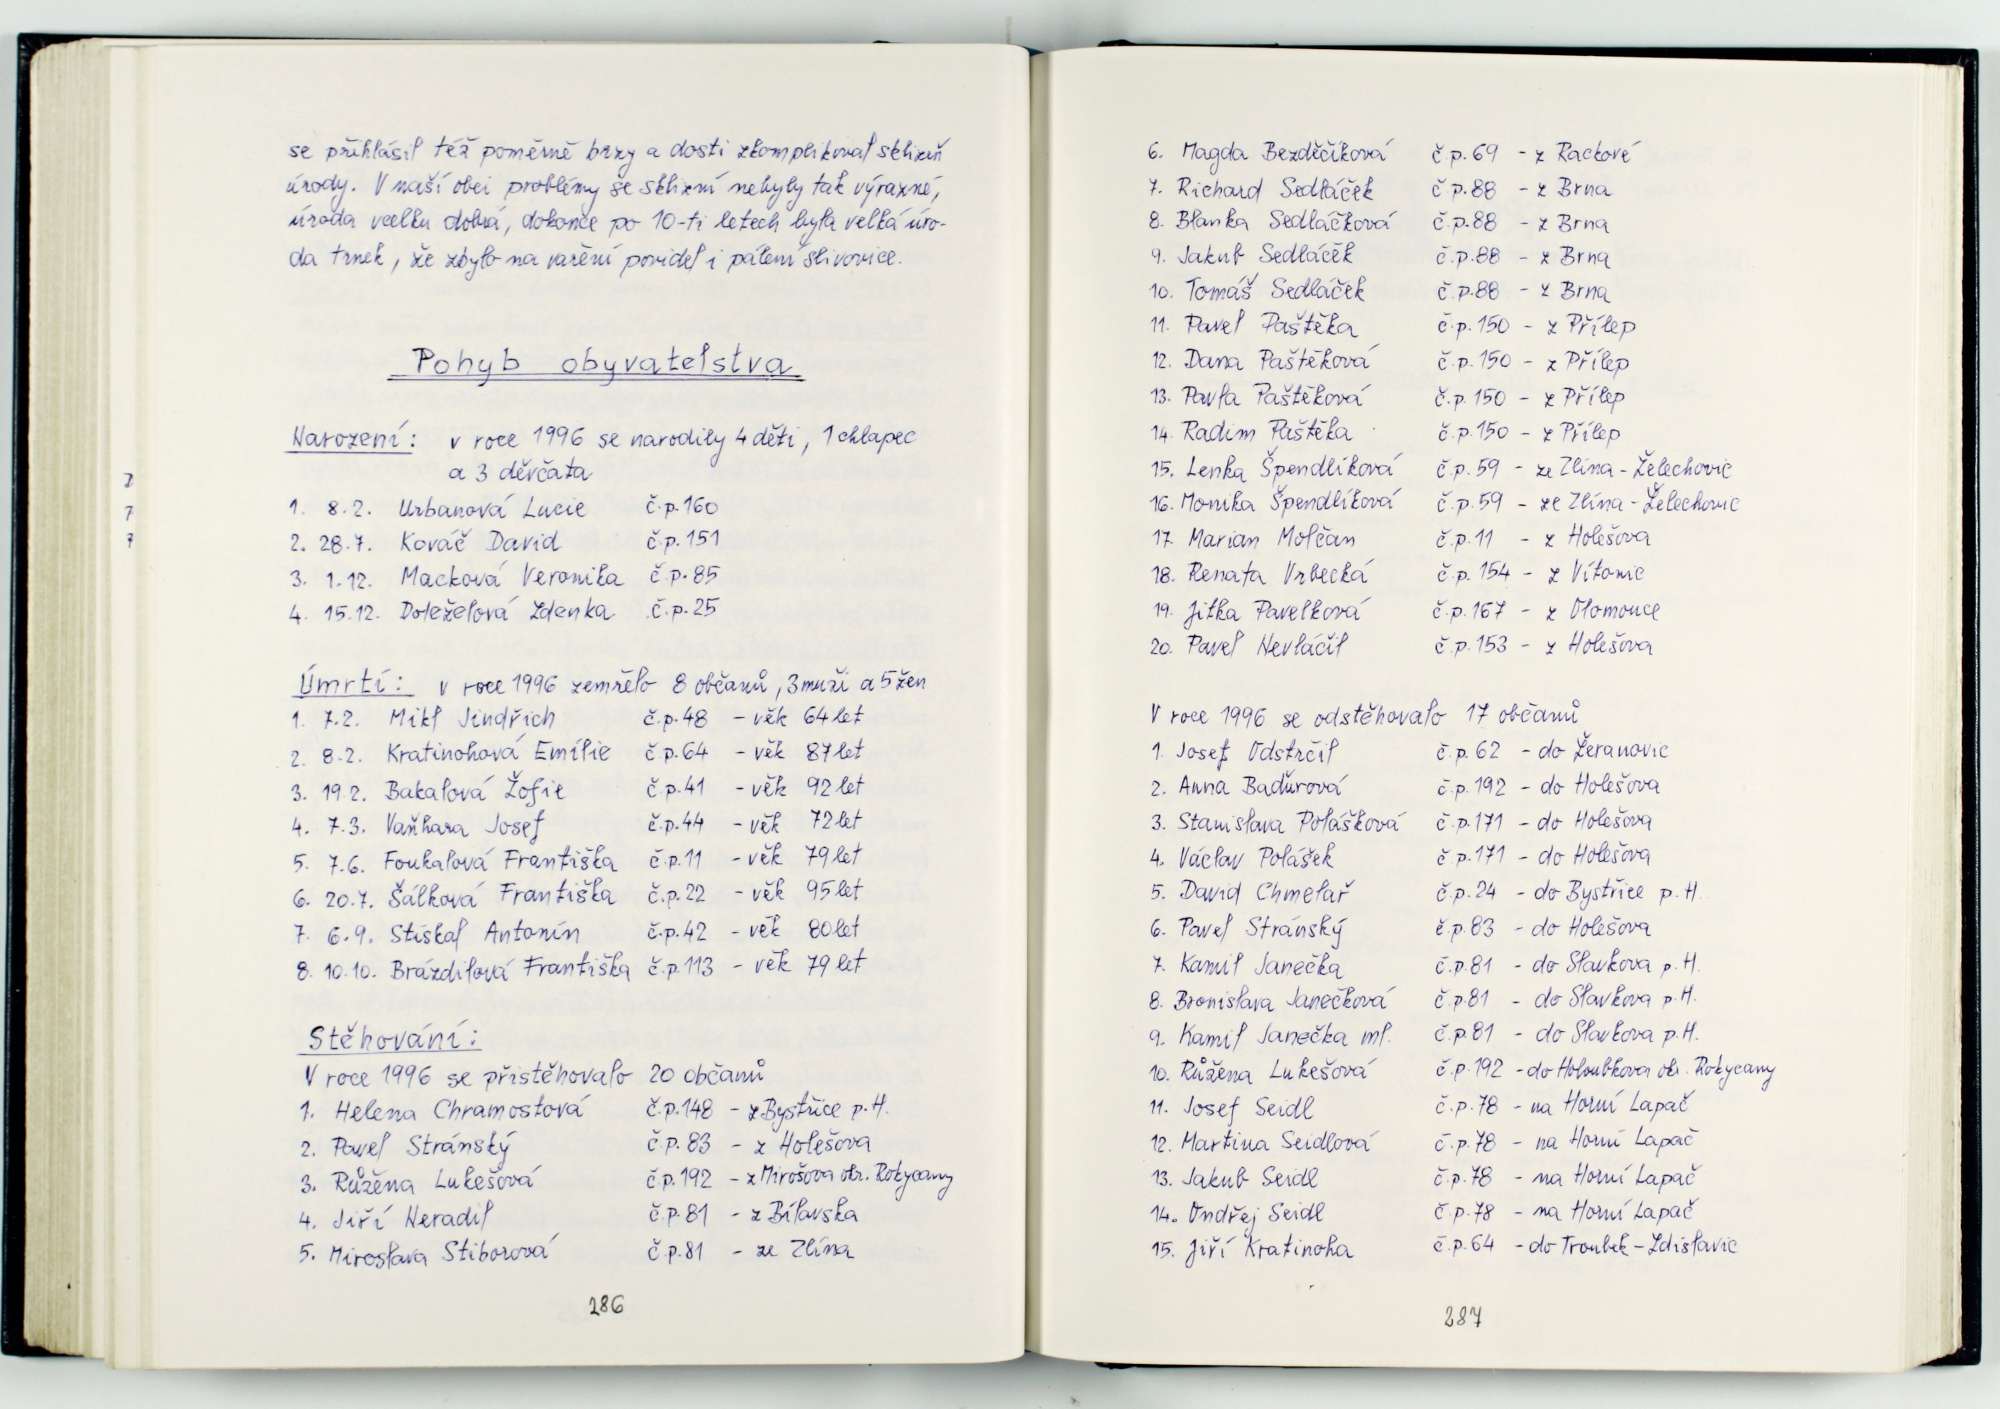 se přihlásil též poměrně brzy a dosti zkomplikoval sklizeň
úrody. V naší obci problémy se sklizní nebyly tak výrazné,
úroda vcelku dobrá, dokonce po 10-ti letech byla velká úro-
da trnek, že zbylo na vaření povidel i pálení slivovice.
Pohyb obyvatelstva
Narození: v roce 1996 se narodily 4 děti, 1 chlapec
a 3 děvčata
1. 8.2. Urbanová Lucie č.p.160
2. 28.7. Kováč David č.p.151
3. 1.12. Macková Veronika č.p.85
4. 15.12. Doleželová Zdenka č.p.25
Úmrtí: v roce 1996 zemřelo 8 občanů, 3 muži a 5 žen
1. 7.2. Mikl Jindřich č.p.48 - věk 64 let
2. 8.2. Kratinohová Emílie č.p.64 - věk 87 let
3. 19.2. Bakalová Žofie č.p.41 - věk 92 let
4. 7.3. Vaňhara Josef č.p.44 - věk 72 let
5. 7.6. Foukalová Františka č.p.11 - věk 79 let
6. 20.7. Šálková Františka č.p.22 - věk 95 let
7. 6.9. Stískal Antonín č.p.42 - věk 80 let
8. 10.10. Brázdilová Františka č.p.113 - věk 79 let
Stěhování:
V roce 1996 se přistěhovalo 20 občanů
1. Helena Chramostová č.p.148 - z Bystřice p.H.
2. Pavel Stránský č.p.83 - z Holešova
3. Růžena Lukešová č.p.192 - z Mirošova okr. Rokycany
4. Jiří Neradil č.p.81 - z Bílavska
5. Miroslava Stiborová č.p.81 - ze Zlína
286
6. Magda Bezděčíková č.p.69 - z Rackové
7. Richard Sedláček č.p.88 - z Brna
8. Blanka Sedláčková č.p.88 - z Brna
9. Jakub Sedláček č.p.88 - z Brna
10. Tomáš Sedláček č.p.88 - z Brna
11. Pavel Paštěka č.p.150 - z Přílep
12. Dana Paštěková č.p.150 - z Přílep
13. Pavla Paštěková č.p.150 - z Přílep
14. Radim Paštěka č.p.150 - z Přílep
15. Lenka Špendlíková č.p.59 - ze Zlína-Želechovic
16. Monika Špendlíková č.p.59 - ze Zlína-Želechovic
17. Marian Molčan č.p.11 - z Holešova
18. Renata Vrbecká č.p.154 - z Vítonic
19. Jitka Pavelková č.p.167 - z Olomouce
20. Pavel Nevláčil č.p.153 - z Holešova
V roce 1996 se odstěhovalo 17 občanů
1. Josef Odstrčil č.p.62 - do Žeranovic
2. Anna Baďurová č.p.192 - do Holešova
3. Stanislava Polášková č.p.171 - do Holešova
4. Václav Polášek č.p.171 - do Holešova
5. David Chmelař č.p.24 - do Bystřice p.H.
6. Pavel Stránský č.p.83 - do Holešova
7. Kamil Janečka č.p.81 - do Slavkova p.H.
8. Bronislava Janečková č.p.81 - do Slavkova p.H.
9. Kamil Janečka ml. č.p.81 - do Slavkova p.H.
10. Růžena Lukešová č.p.192 - do Holoubkova okr. Rokycany
11. Josef Seidl č.p.78 - na Horní Lapač
12. Martina Seidlová č.p.78 - na Horní Lapač
13. Jakub Seidl č.p.78 - na Horní Lapač
14. Ondřej Seidl č.p.78 - na Horní Lapač
15. Jiří Kratinoha č.p.64 - do Troubek-Zdislavic
287